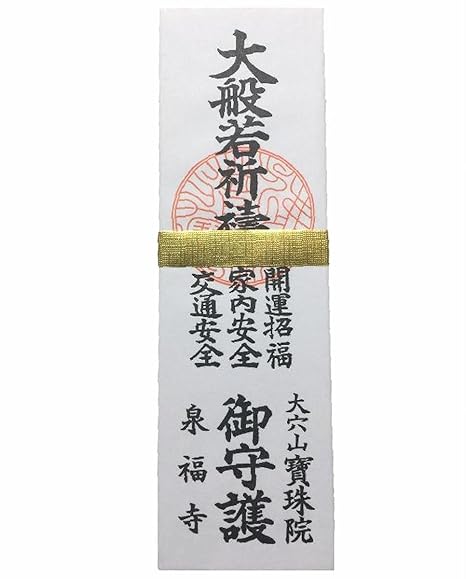 大般若祈禱
開運招福
家内安全
交通安全
御守護
大穴山寶珠院
泉福寺